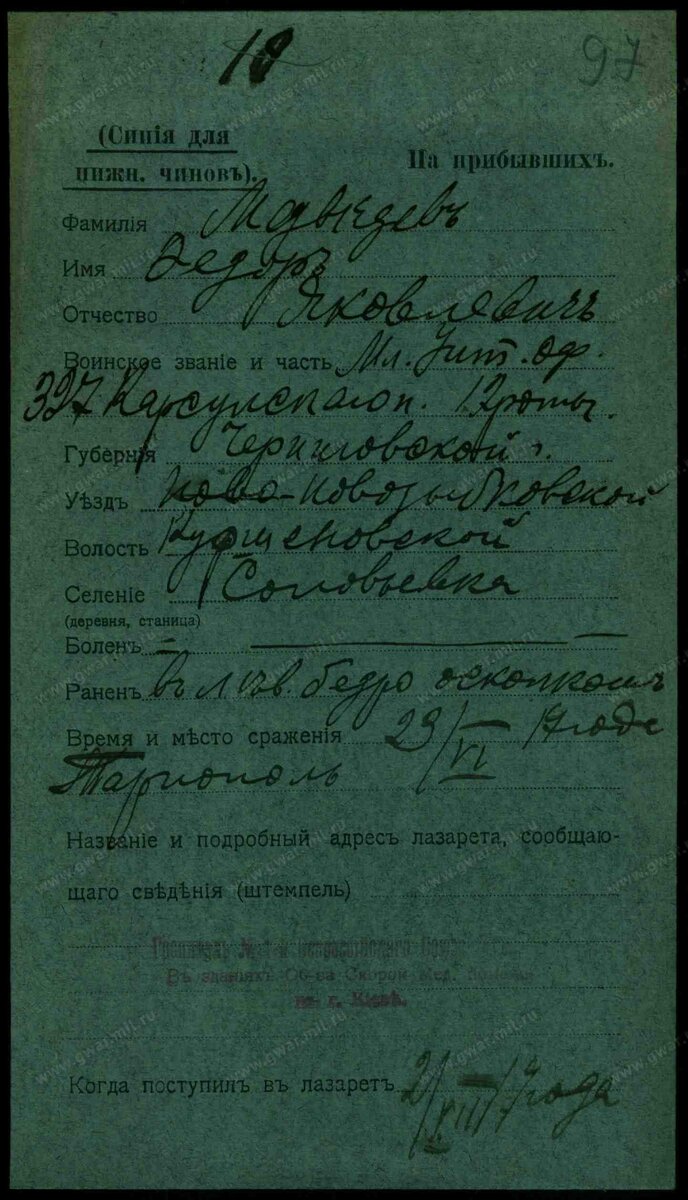 18
97
(Синія для
нижн. чиновъ).
На прибывшихъ.
Фамилія Медвѣдевъ
Имя Федоръ
Отчество Яковлевичъ
Воинское званіе и часть Мл. Унт. Оф.
327 Карсунскаго п. 12 роты.
Губернія Черниговской г.
Уѣздъ Ново-Новозыбковской
Волость
Селеніе Соловьевка
(деревня, станица)
Боленъ —
Раненъ въ лѣв. бедро осколкомъ
Время и мѣсто сраженія 29/VI 17 года
Тарнополь
Названіе и подробный адресъ лазарета, сообщаю-
щаго свѣдѣнія (штемпель)
Госпиталь Всероссійскаго
Въ зданіяхъ Об-ва Скорой Мед. Помощи
въ г. Кіевѣ.
Когда поступилъ въ лазаретъ 2/VII 17 года
www.gwar.mil.ru